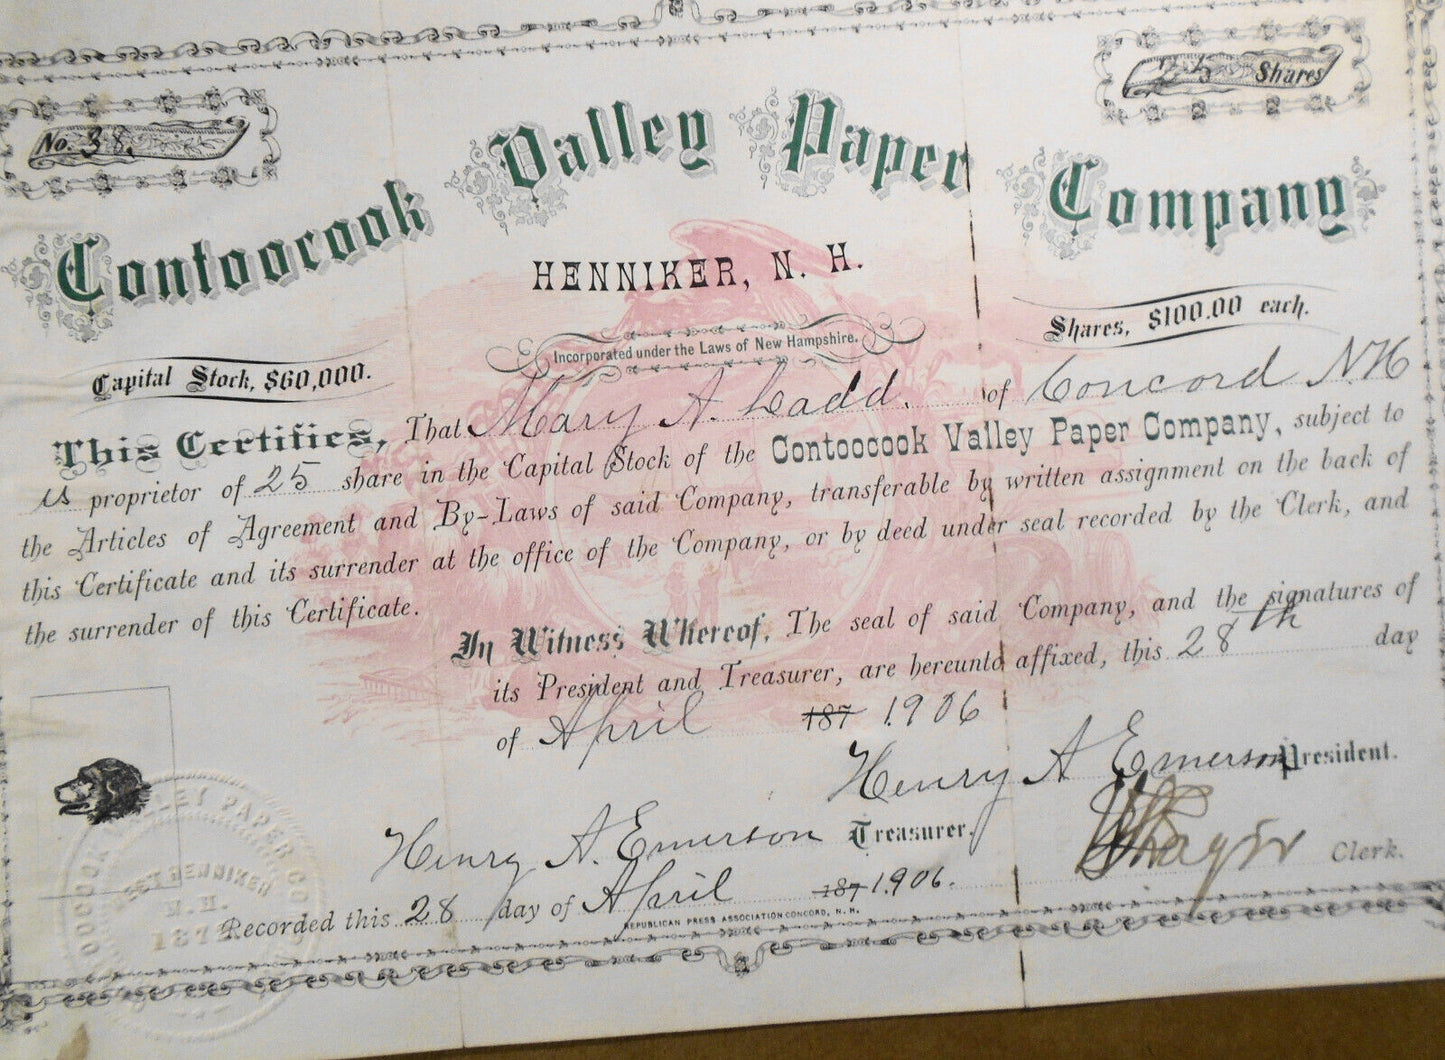 No. 38.
25 Shares
Contoocook Valley Paper Company
HENNIKER, N. H.
Incorporated under the Laws of New Hampshire.
Capital Stock, $60,000.
Shares, $100.00 each.
This Certifies, That Mary A. Ladd. of Concord N.H
is proprietor of 25 share in the Capital Stock of the Contoocook Valley Paper Company, subject to
the Articles of Agreement and By-Laws of said Company, transferable by written assignment on the back of
this Certificate and its surrender at the office of the Company, or by deed under seal recorded by the Clerk, and
the surrender of this Certificate.
In Witness Whereof, The seal of said Company, and the signatures of
its President and Treasurer, are hereunto affixed, this 28th day
of April 187 1906
Henry A Emerson President.
Henry A. Emerson Treasurer.
Clerk.
Recorded this 28 day of April 187 1906.
REPUBLICAN PRESS ASSOCIATION CONCORD, N. H.
VALLEY PAPER CO
HENNIKER
N.H.